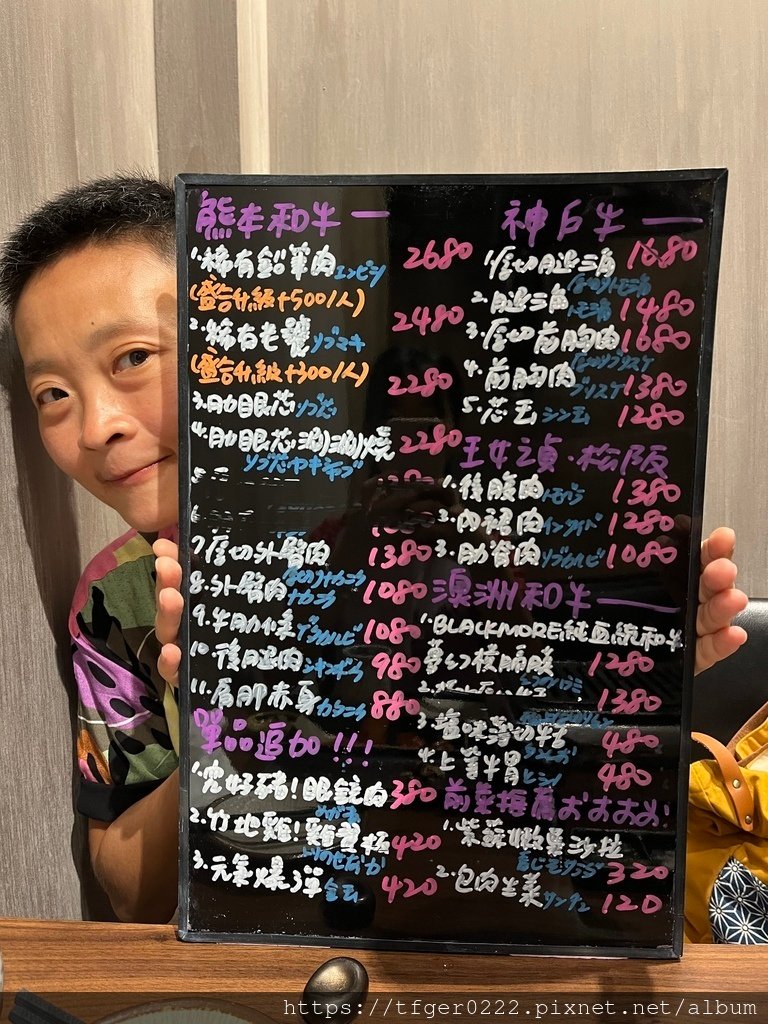 熊本和牛一
1.稀有鉛筆肉エンピツ 2680
(盛合升級+500/人)
2.稀有老饕リブマキ 2480
(盛合升級+300/人)
3.肋眼芯リブ芯 2280
4.肋眼芯涮涮燒 2280
5.
7.厚切外臀肉 1380
8.外臀肉 1080
9.牛肋條 1080
10.後腿肉 980
11.肩胛赤身 880
單品追加!!!
1.究好豬!眼鏡肉 380
2.竹地雞!雞翼板 420
3.元氣爆彈 420
神戶牛一
1.厚切腿三角 1680
2.腿三角トモ三角 1480
3.厚切前胸肉 1680
4.前胸肉ブリスケ 1380
5.芯玉シンタマ 1280
王女之貞·松阪
1.後腹肉トモバラ 1380
2.內裙肉インサイド 1280
3.肋脊肉リブカルビ 1080
澳洲和牛一
1.BLACKMORE純血統和牛
夢幻橫隔膜 1280
2. 1380
3.鹽味薄切牛舌 480
4.上等牛胃 480
前菜推薦おすすめ!
1.紫蘇嫩蔓沙拉 320
2.包肉生菜サンチュ 120
https://tfger0222.pixnet.net/album